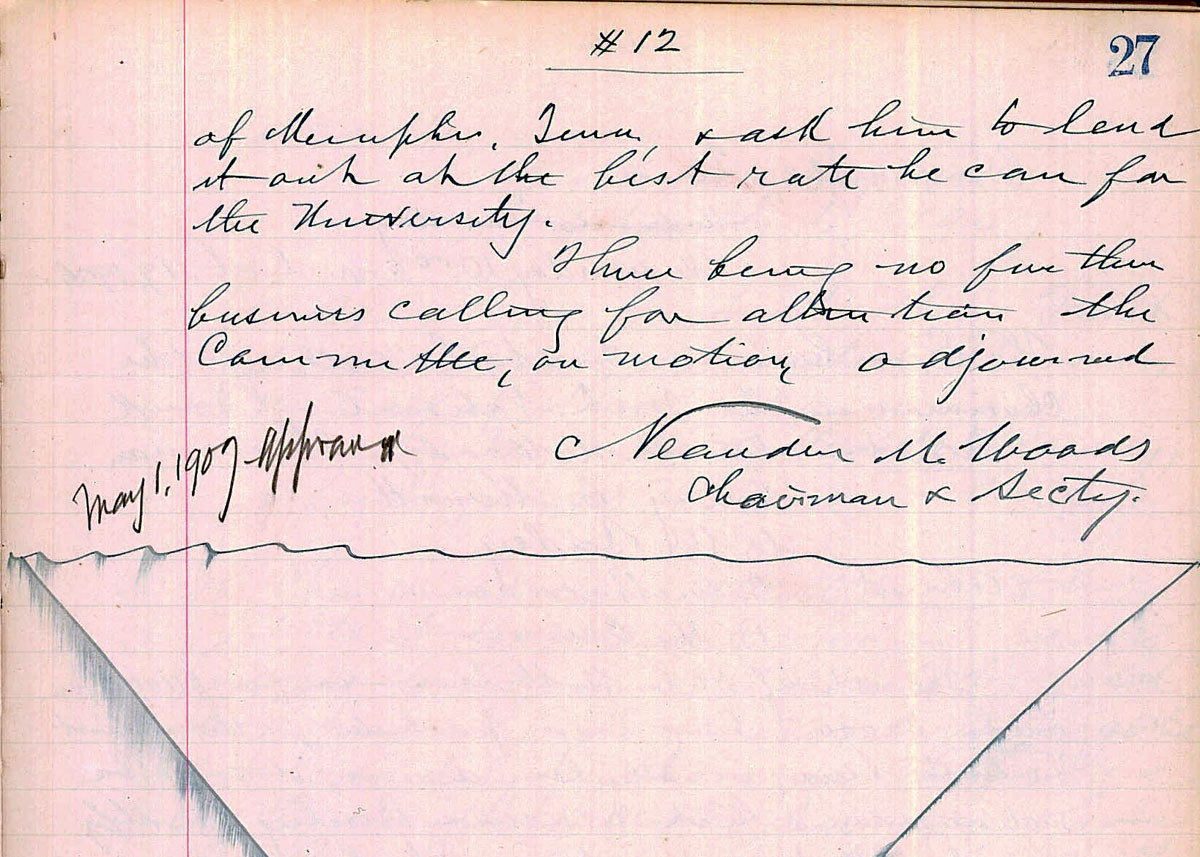 #12
27
of Memphis, Tenn, & ask him to lend
it out at the best rate he can for
the University.
There being no further
business calling for attention the
Committee, on motion, adjourned
Neander M. Woods
Chairman & Secty.
May 1, 1907 Approved